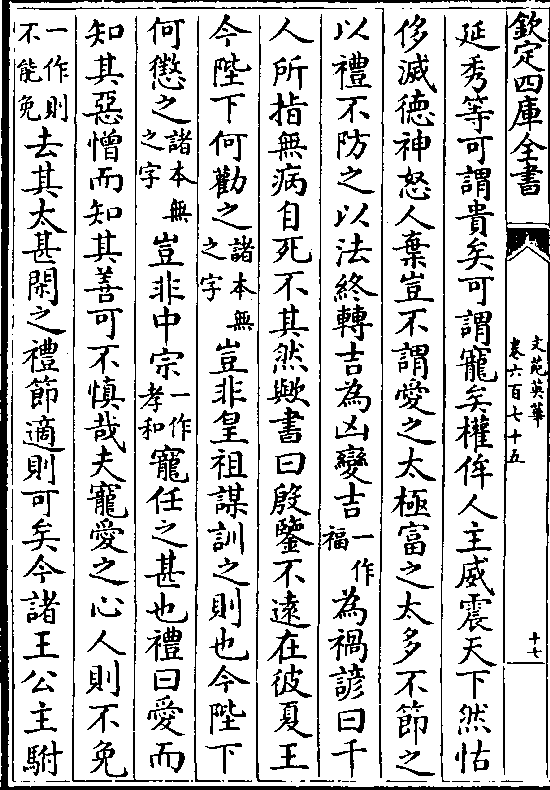 欽定四庫全書
文苑英華
卷六百七十五
十七
延秀等可謂貴矣可謂寵矣權侔人主威震天下然怙
侈滅德神怒人棄豈不謂愛之太極富之太多不節之
以禮不防之以法終轉吉為凶變吉一作福為禍諺曰千
人所指無病自死不其然歟書曰殷鑒不遠在彼夏王
今陛下何勸之諸本無之字豈非皇祖謀訓之則也今陛下
何懲之諸本無之字豈非中宗一作孝和寵任之甚也禮曰愛而
知其惡憎而知其善可不慎哉夫寵愛之心人則不免
一作則不能免去其太甚閑之禮節適則可矣今諸王公主駙